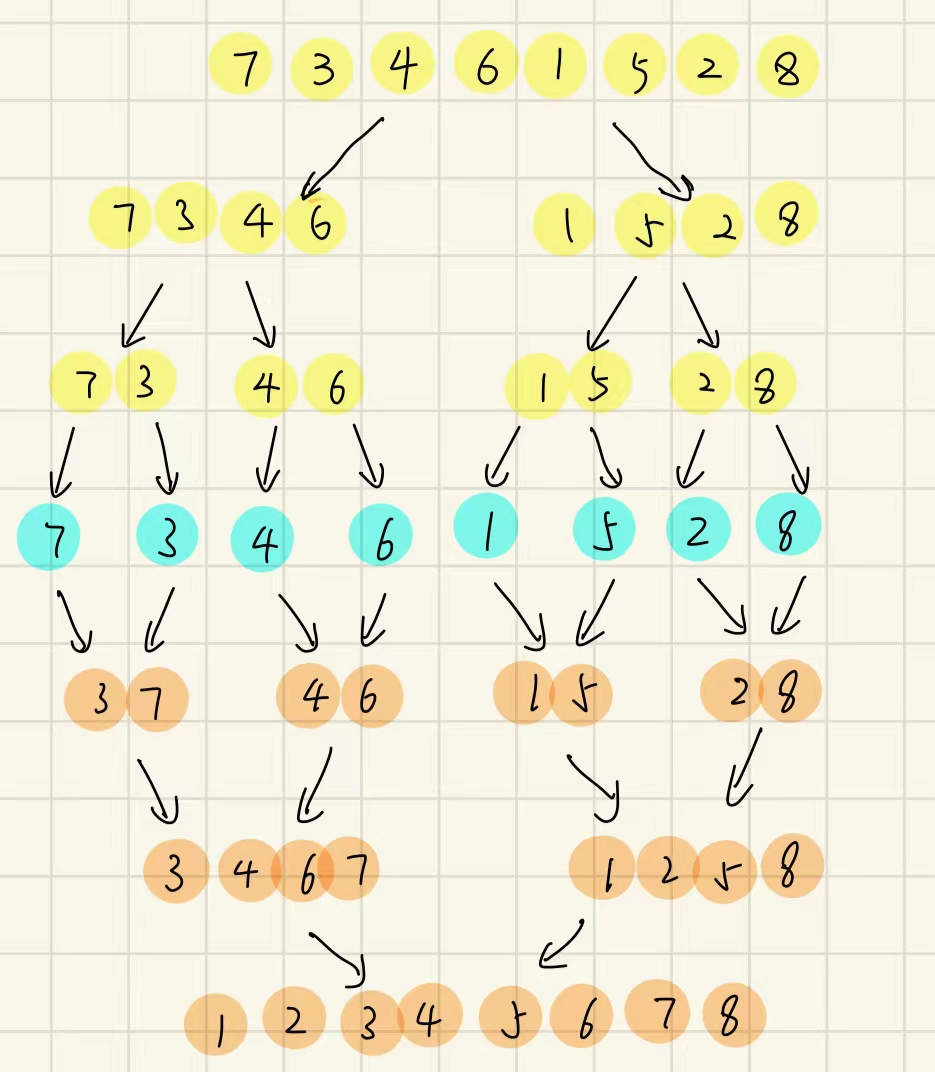 7 3 4 6 1 5 2 8
7 3 4 6 1 5 2 8
7 3 4 6 1 5 2 8
7 3 4 6 1 5 2 8
3 7 4 6 1 5 2 8
3 4 6 7 1 2 5 8
1 2 3 4 5 6 7 8